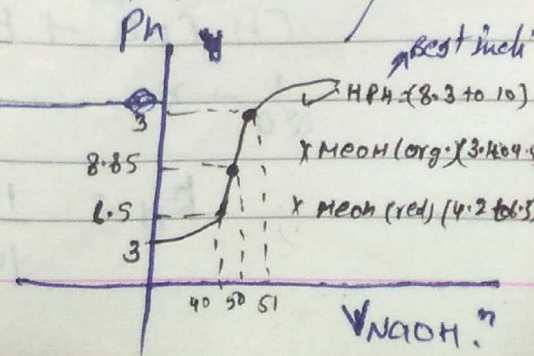 PH
Best indi
HPH - (8.3 to 10)
3
x MeOH (org.) (3.1 to 4.4
8.85
6.5
x MeOH (red) (4.2 to 6.3
3
40 50 51
VNaOH.